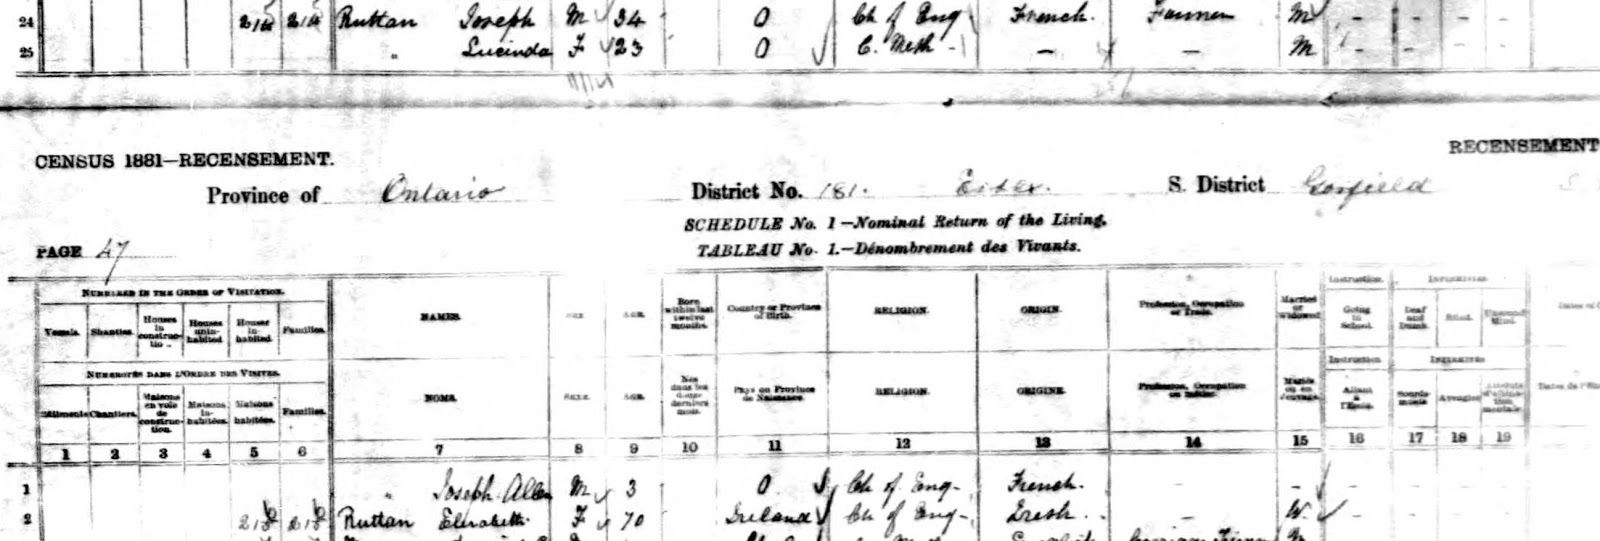 24 Ruttan Joseph M 34 O Ch of Eng French. Farmer M - - -
25 " Lucinda F 23 O C. Meth - - - M - - -
RECENSEMENT
CENSUS 1881—RECENSEMENT.
Province of Ontario District No. 181. Essex. S. District Gosfield
SCHEDULE No. 1—Nominal Return of the Living.
TABLEAU No. 1.—Dénombrement des Vivants.
PAGE 47
NUMBERED IN THE ORDER OF VISITATION.
Vessels. Shanties. Houses in construction. Houses uninhabited. Houses inhabited. Families. NAMES. SEX. AGE. Born within last twelve months. Country or Province of Birth. RELIGION. ORIGIN. Profession, Occupation or Trade. Married or Widowed. Instruction. Going to School. INFIRMITIES Deaf and Dumb. Blind. Unsound Mind.
NUMÉROTÉS DANS L'ORDRE DES VISITES.
Bâtiments. Chantiers. Maisons en voie de construction. Maisons inhabitées. Maisons habitées. Familles. NOMS. SEXE. AGE. Nés dans les douze derniers mois. Pays ou Province de Naissance. RELIGION. ORIGINE. Profession, Occupation ou métier. Mariés ou en veuvage. Instruction. Allant à l'École. INFIRMITÉS Sourds-muets Aveugles
1 2 3 4 5 6 7 8 9 10 11 12 13 14 15 16 17 18 19
1 " Joseph Allen M 3 O Ch of Eng - French. - - - - -
2 Ruttan Elizabeth F 70 Ireland Ch of Eng - Irish. - W. - - -